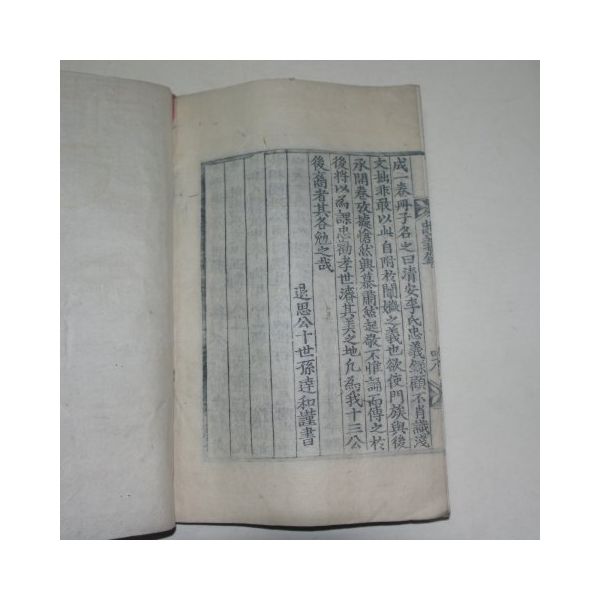 成一卷冊子名之曰清安李氏忠義錄顧不肖識淺
文拙非敢以此自附於闡
之義也欲使門族與後
承開卷攷據愴然興慕肅然起敬不惟誦而傳之於
後將以爲課忠勸孝世濟其美之地凡爲我十三公
後裔者其各勉之哉
退思公十世孫達和謹書